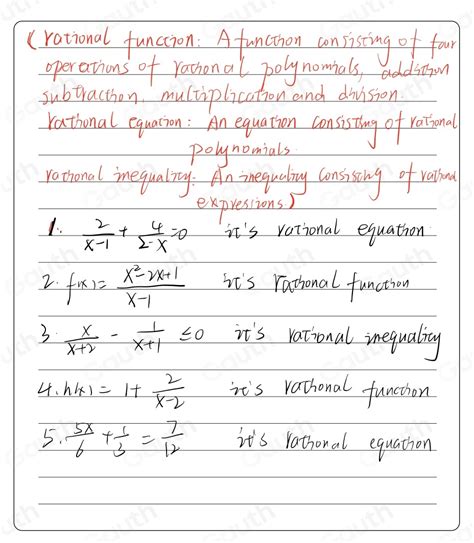 (rational function: A function consisting of four
operations of rational polynomials, addition
subtraction, multiplication and division.
rational equation: An equation consisting of rational
polynomials.
rational inequality: An inequality consisting of rational
expresisions)
1. 2/(x-1) + 4/(2-x) = 0 it's rational equation
2. f(x) = (x²-2x+1)/(x-1) it's rational function
3. x/(x+2) - 1/(x+1) ≤0 it's rational inequality
4. h(x) = 1+ 2/(x-2) it's rational function
5. 5x/6 + 1/3 = 7/12 it's rational equation
Gauth